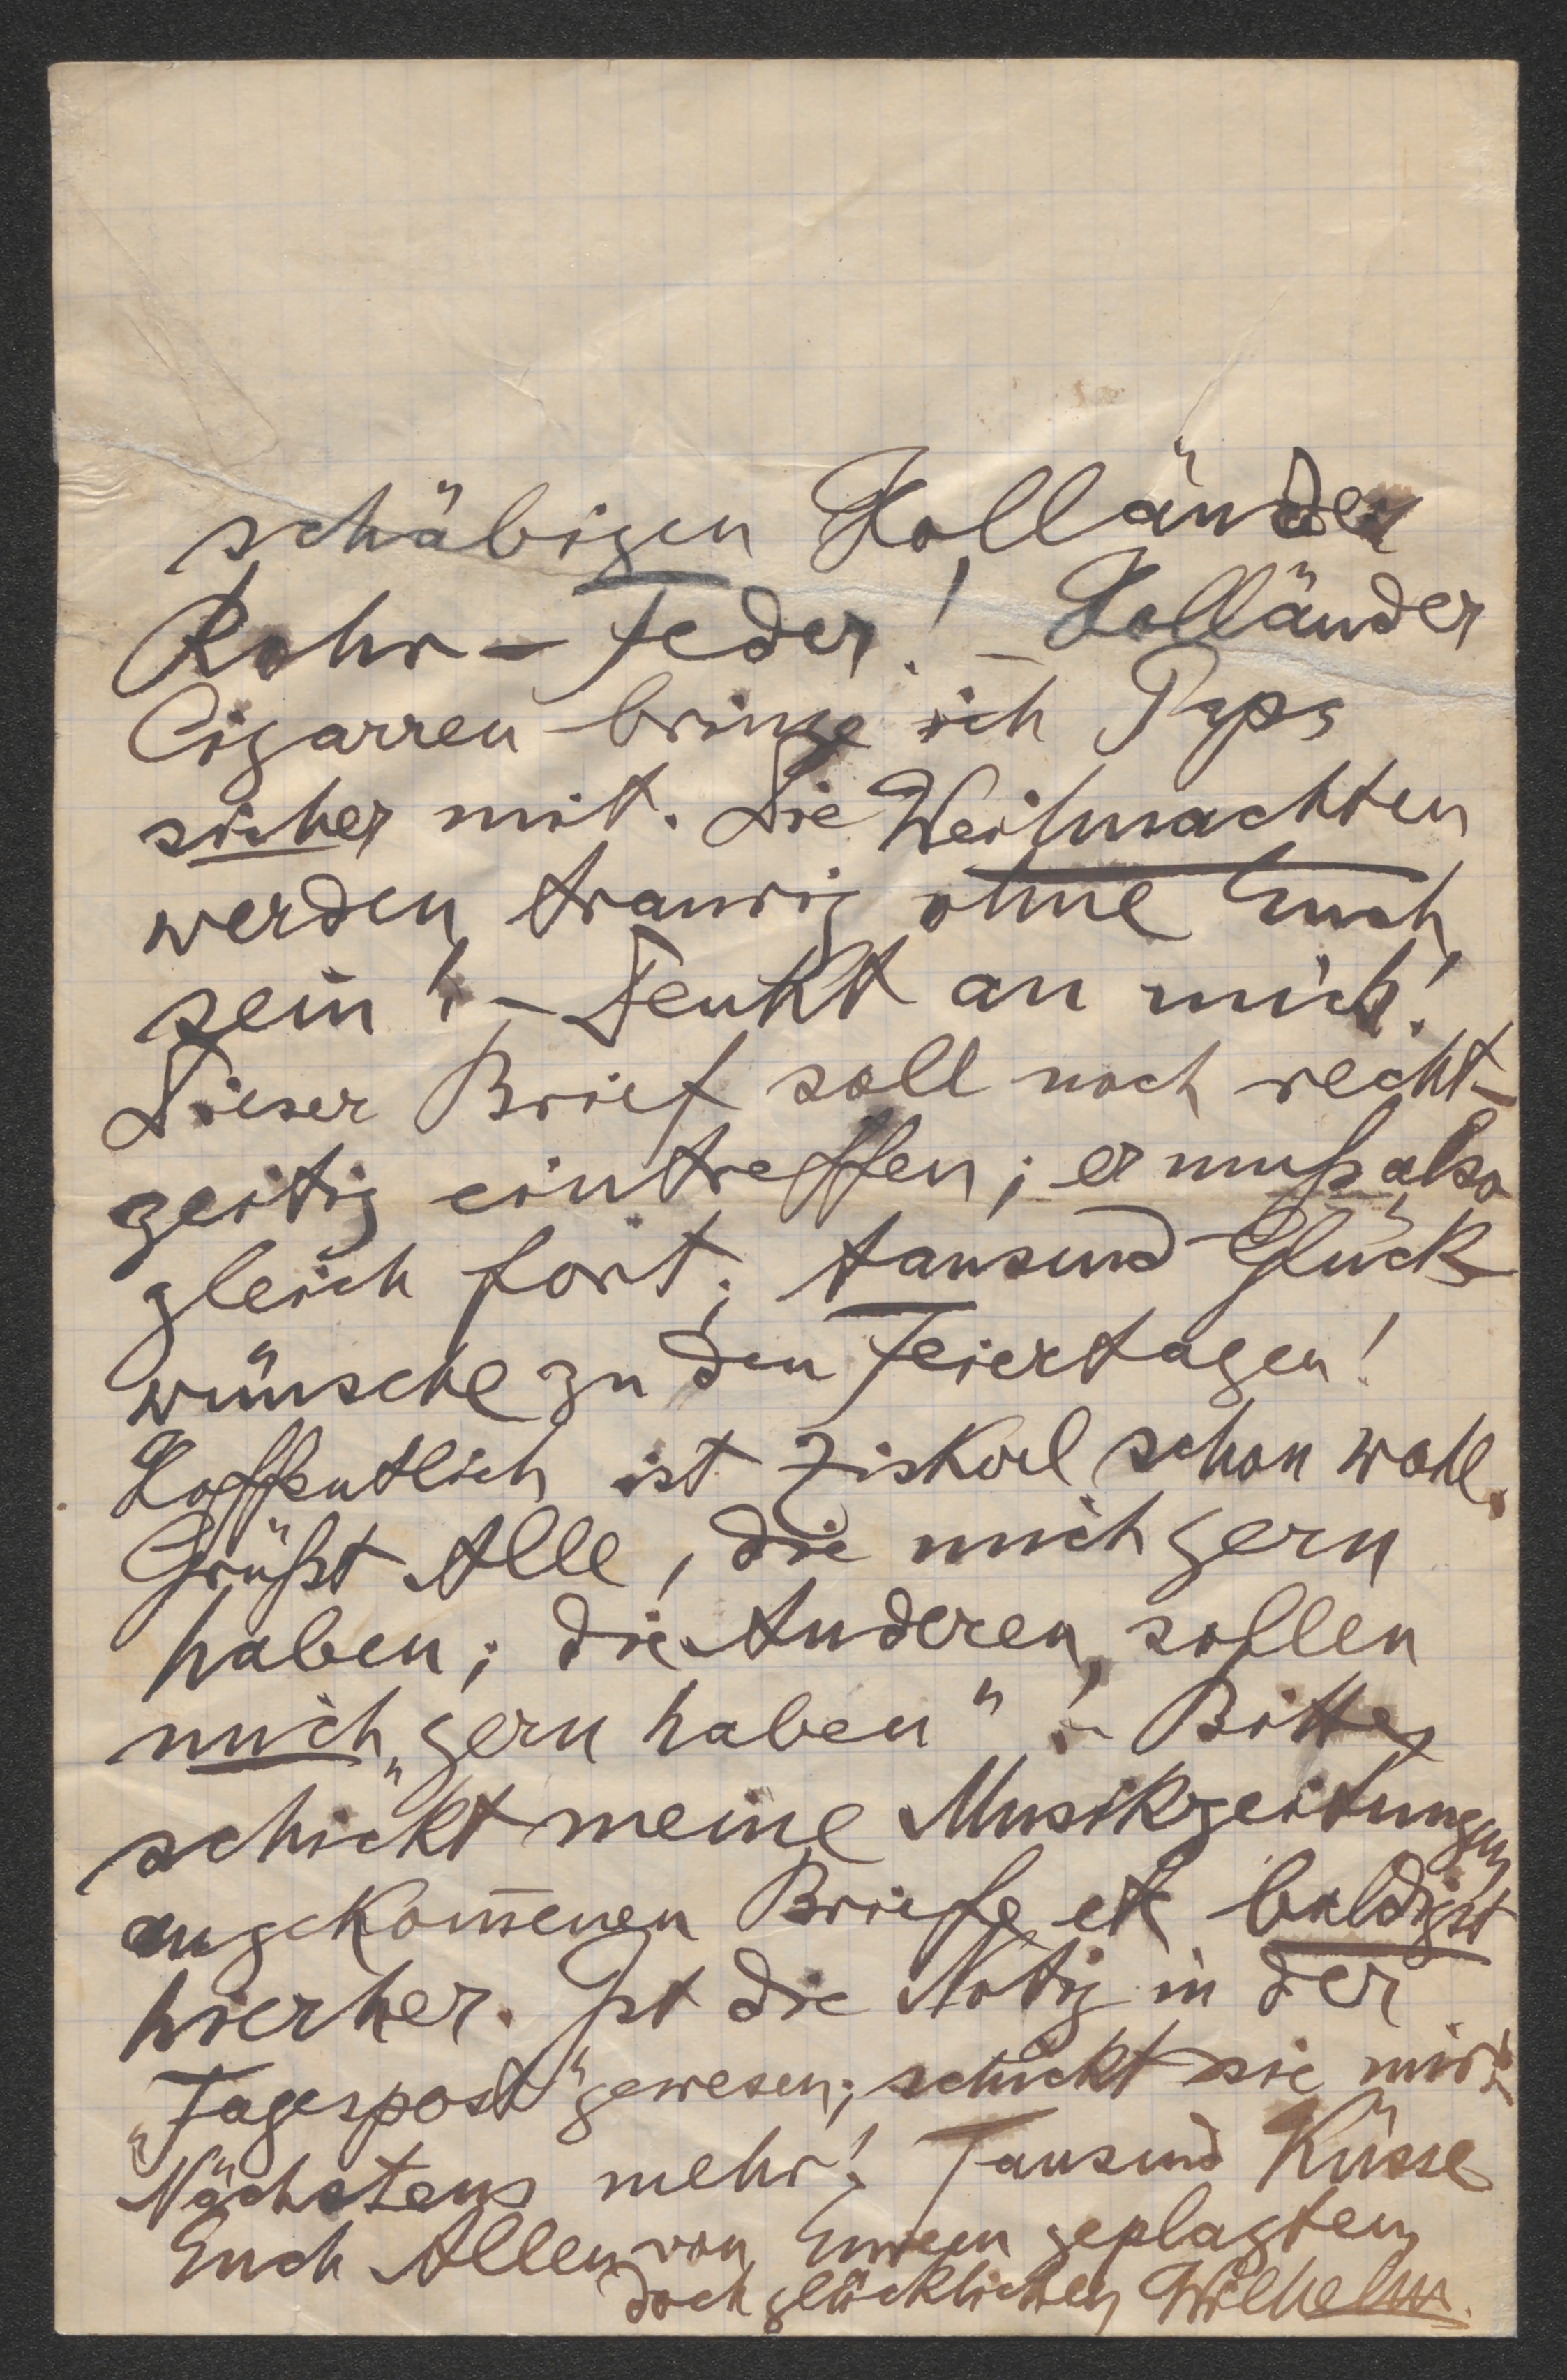 schäbigen Holländer
Rohr-Feder! – Holländer
Cigarren bringe ich Paps
sicher mit. Die Weihnachten
werden traurig ohne Euch
sein! – Denkt an mich!
Dieser Brief soll noch recht-
zeitig eintreffen; er muß also
gleich fort; tausend Glück
wünsche zu den Feiertagen!
Hoffentlich ist schon wohl.
Grüßt Alle, die mich gern
haben; die Anderen sollen
mich „gern haben“! – Bitte
schickt meine Musikzeitungen
angekom̅enen Briefe etc baldigst
hierher. Ist die Notiz in der
„Tagespost“ gewesen; schickt sie mir!
Nächstens mehr! Tausend Küsse
Euch Allen von Eurem geplagten
doch glücklichen Wilhelm.